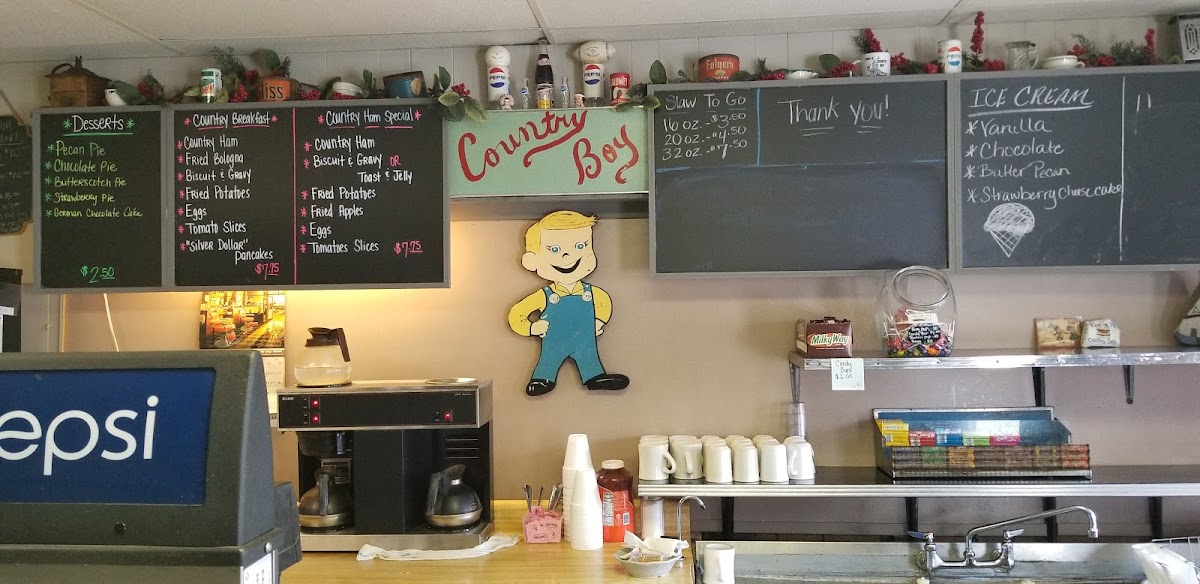 *Desserts*
*Pecan Pie
*Chocolate Pie
*Butterscotch Pie
*Strawberry Pie
*German Chocolate Cake
$2.50
*Country Breakfast*
*Country Ham
*Fried Bologna
*Biscuit & Gravy
*Fried Potatoes
*Eggs
*Tomato Slices
*"Silver Dollar"
Pancakes
$7.75
*Country Ham Special*
*Country Ham
*Biscuit & Gravy OR
Toast & Jelly
*Fried Potatoes
*Fried Apples
*Eggs
*Tomatoes Slices $7.75
Country
Boy
Slaw To Go
16 oz. - $3.50
20 oz. - $4.50
32 oz. - $7.50
Thank you!
ICE CREAM
*Vanilla
*Chocolate
*Butter Pecan
*Strawberry Cheesecake
Folgers
PEPSI
PEPSI
PEPSI
MilkyWay
Candy
Bars
$1.00
epsi